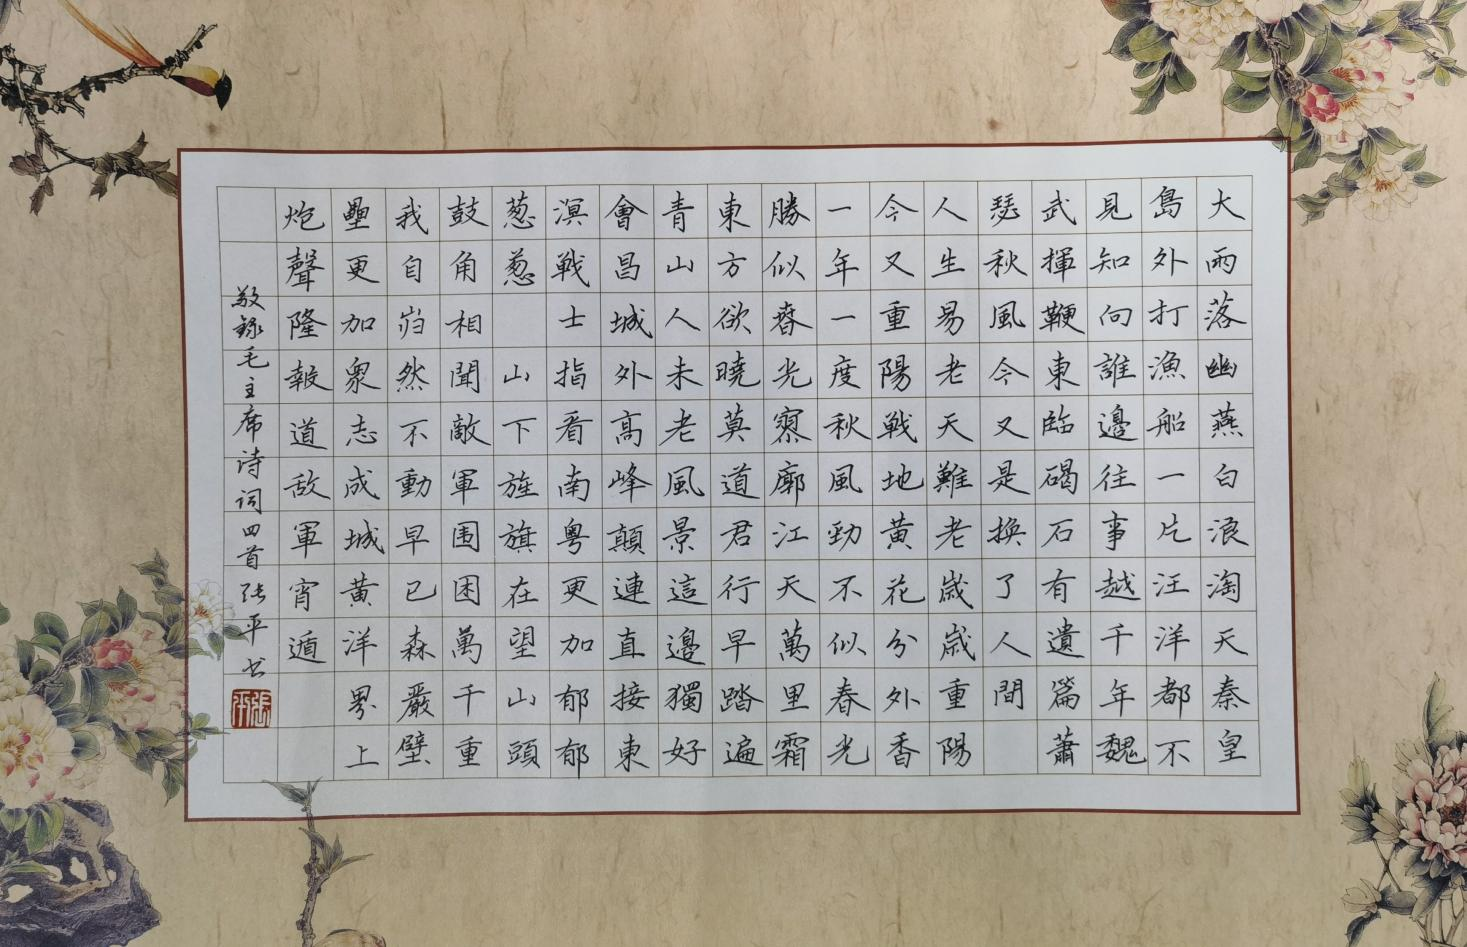 大雨落幽燕白浪淘天秦皇
島外打漁船一片汪洋都不
見知向誰邊往事越千年魏
武揮鞭東臨碣石有遺篇蕭
瑟秋風今又是換了人間
人生易老天難老歲歲重陽
今又重陽戰地黃花分外香
一年一度秋風勁不似春光
勝似春光寥廓江天萬里霜
東方欲曉莫道君行早踏遍
青山人未老風景這邊獨好
會昌城外高峰顛連直接東
溟戰士指看南粵更加郁郁
葱葱 山下旌旗在望山頭
鼓角相聞敵軍围困萬千重
我自歸然不動早已森嚴壁
壘更加眾志成城黃洋界上
炮聲隆報道敵軍宵遁
敬錄毛主席诗词四首张平书
张平